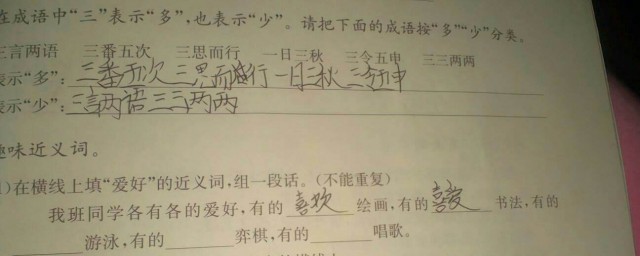 在成语中“三”表示“多”,也表示“少”。请把下面的成语按“多”“少”分类。
三言两语 三番五次 三思而行 一日三秋 三令五申 三三两两
表示“多”:三番五次 三思而行 一日三秋 三令五申
表示“少”:三言两语 三三两两
趣味近义词。
)在横线上填“爱好”的近义词,组一段话。(不能重复)
我班同学各有各的爱好,有的 喜欢 绘画,有的 喜爱 书法,有的
游泳,有的 弈棋,有的 唱歌。